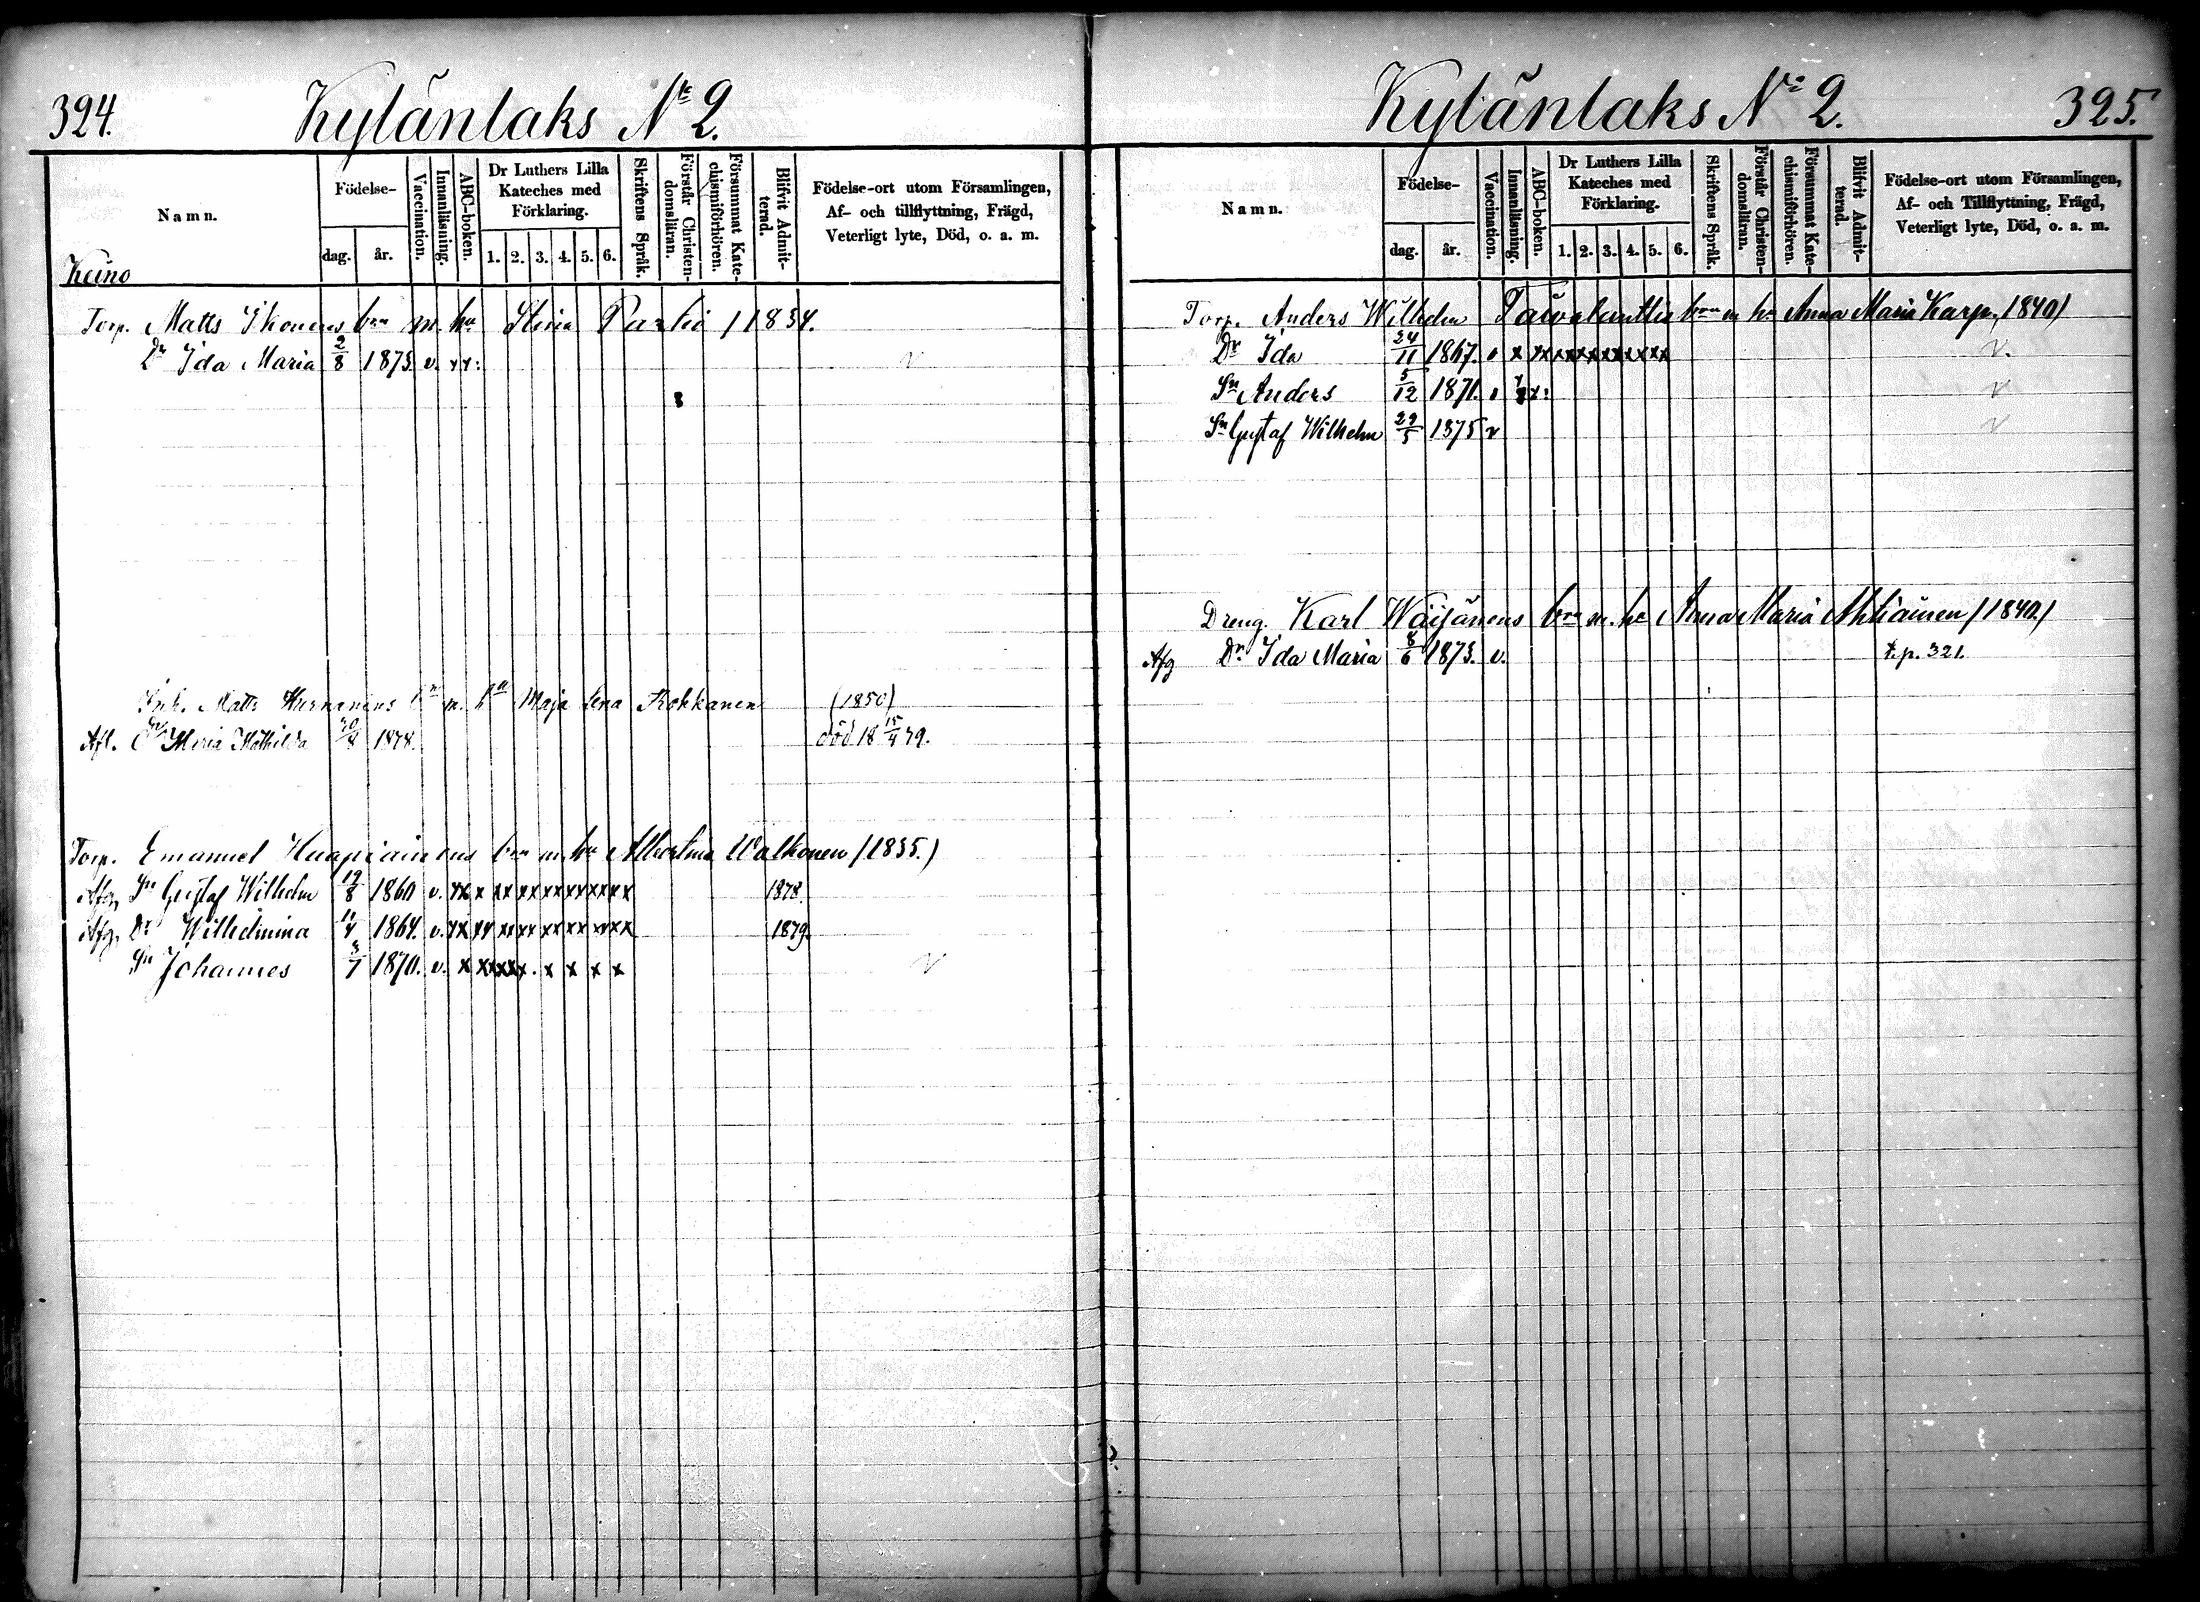 324.
Kylänlaks № 2.
Namn.
Födelse-
dag. år.
Vaccination.
Innanläsning.
ABC-boken.
Dr Luthers Lilla
Kateches med
Förklaring.
1. 2. 3. 4. 5. 6.
Skriftens Språk.
Förstår Christen-
domsläran.
Försummat Kate-
chismiförhören.
Blifvit Admit-
terad.
Födelse-ort utom Församlingen,
Af- och tillflyttning, Frägd,
Veterligt lyte, Död, o. a. m.
Torp. Matts Ikonens bn m. hu Stina Partio /1834.
Dr Ida Maria 2/8 1873. v. xx: v
Inh. Matts bn m. hu Maja Lena Kokkanen (1850)
Afl. Dr Maria Mathilda 20/8 1878. död 18 15/4 79.
Torp. Emanuel Huapiainens bn m. hu Albertina Walkonen /1835.)
Afg. Sn Gustaf Wilhelm 19/8 1860 v. xx x xx xx xx xx xx xx 1878.
Afg. Dr Wilhelmina 11/4 1864. v. xx xx xx xx xx xx xx xx 1879.
Sn Johannes 3/7 1870. v. x xx xx x. x x x x v
Kylänlaks № 2.
325.
Namn.
Födelse-
dag. år.
Vaccination.
Innanläsning.
ABC-boken.
Dr Luthers Lilla
Kateches med
Förklaring.
1. 2. 3. 4. 5. 6.
Skriftens Språk.
Förstår Christen-
domsläran.
Försummat Kate-
chismiförhören.
Blifvit Admit-
terad.
Födelse-ort utom Församlingen,
Af- och Tillflyttning, Frägd,
Veterligt lyte, Död, o. a. m.
Torp. Anders Wilhelm bn m hu Anna Maria Karp, 1840)
Dr Ida 24/11 1867. v x xxxxxxxxxxx v.
Sn Anders 5/12 1871. v v
Sn Gustaf Wilhelm 29/5 1875 v v
Dreng. Karl Wäisänens bn m. hu Anna Maria Ahtiainen /1840./
Afg Dr Ida Maria 8/6 1873. v. t. p. 321.